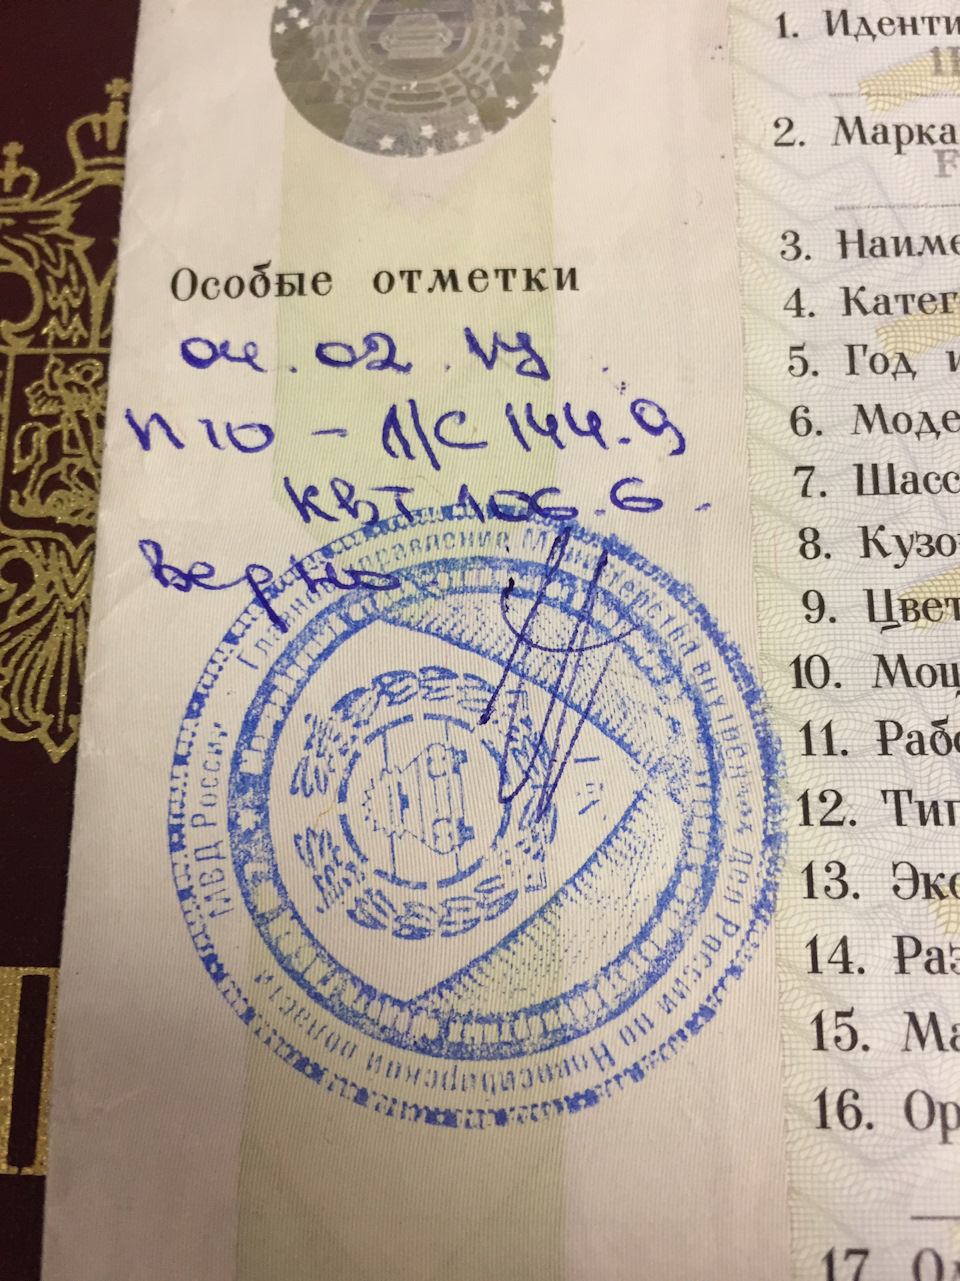 Особые отметки
04.02.
П 10 - Л/С 144.9
КВТ 106.6.
Верно
Главное управление Министерства внутренних дел России по Новосибирской области
МВД России
1. Иденти
2. Марка
F
3. Наиме
4. Катег
5. Год и
6. Моде
7. Шасс
8. Кузо
9. Цвет
10. Мощ
11. Рабо
12. Тип
13. Эко
14. Раз
15. Ма
16. Ор
17. Од